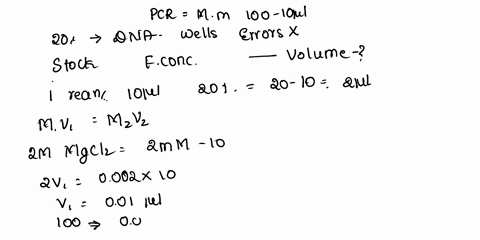 PCR = M.m 100-10μl
20% → DNA. Wells Errors X
Stock F.conc. — Volume-?
1 reanc 10μl 20%. = 20-10 = 2μl
M.V₁ = M₂V₂
2M MgCl₂ = 2mM - 10
2V₁ = 0.002 × 10
V₁ = 0.01 μl
100 ⇒ 0.0